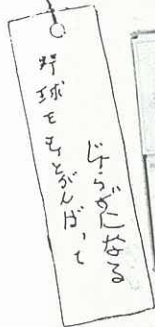 野球をもっとがんばって
じょうずになる